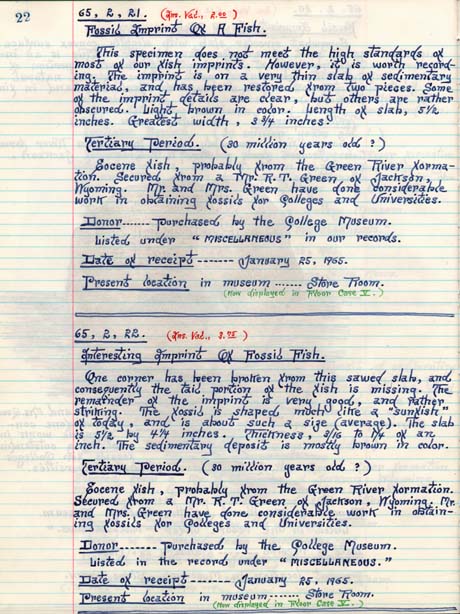 22
65, 2, 21. (Ins. Val.,
Fossil Imprint Of A Fish.
This specimen does not meet the high standards of
most of our fish imprints. However, it is worth record-
ing. The imprint is on a very thin slab of sedimentary
material, and has been restored from two pieces. Some
of the imprint details are clear, but others are rather
obscured. Light brown in color. Length of slab, 5 1/2
inches. Greatest width, 3 3/4 inches.
Tertiary Period. (30 million years old ?)
Eocene fish, probably from the Green River forma-
tion. Secured from a Mr. R. T. Green, of Jackson,
Wyoming. Mr. and Mrs. Green have done considerable
work in obtaining fossils for Colleges and Universities.
Donor------- Purchased by the College Museum.
Listed under "MISCELLANEOUS" in our records.
Date of receipt -------- January 25, 1965.
Present location in museum ------- Store Room.
(Now displayed in Floor Case V.)
65, 2, 22. (Ins. Val.,
Interesting Imprint Of Fossil Fish.
One corner has been broken from this sawed slab, and
consequently the tail portion of the fish is missing. The
remainder of the imprint is very good, and rather
striking. The fossil is shaped much like a "sunfish"
of today, and is about such a size (average). The slab
is 5 1/2 by 4 1/4 inches. Thickness, 3/16 to 1/4 of an
inch. The sedimentary deposit is mostly brown in color.
Tertiary Period. (30 million years old ?)
Eocene fish, probably from the Green River formation.
Secured from a Mr. R. T. Green of Jackson, Wyoming. Mr.
and Mrs. Green have done considerable work in obtain-
ing fossils for Colleges and Universities.
Donor------- Purchased by the College Museum.
Listed in the record under "MISCELLANEOUS."
Date of receipt ------- January 25, 1965.
Present location in museum ------ Store Room.
(Now displayed in Floor Case V.)